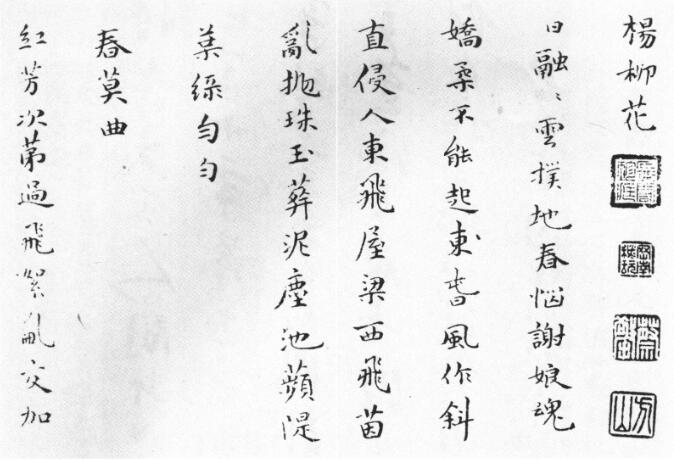 楊柳花
日融〻雲撲地春惱謝娘魂
嬌柔不能起東旾風作斜
直侵人東飛屋梁西飛茵
亂拋珠玉葬泥塵池蘋隄
葉綠勻勻
春莫曲
紅芳次第過飛絮亂交加